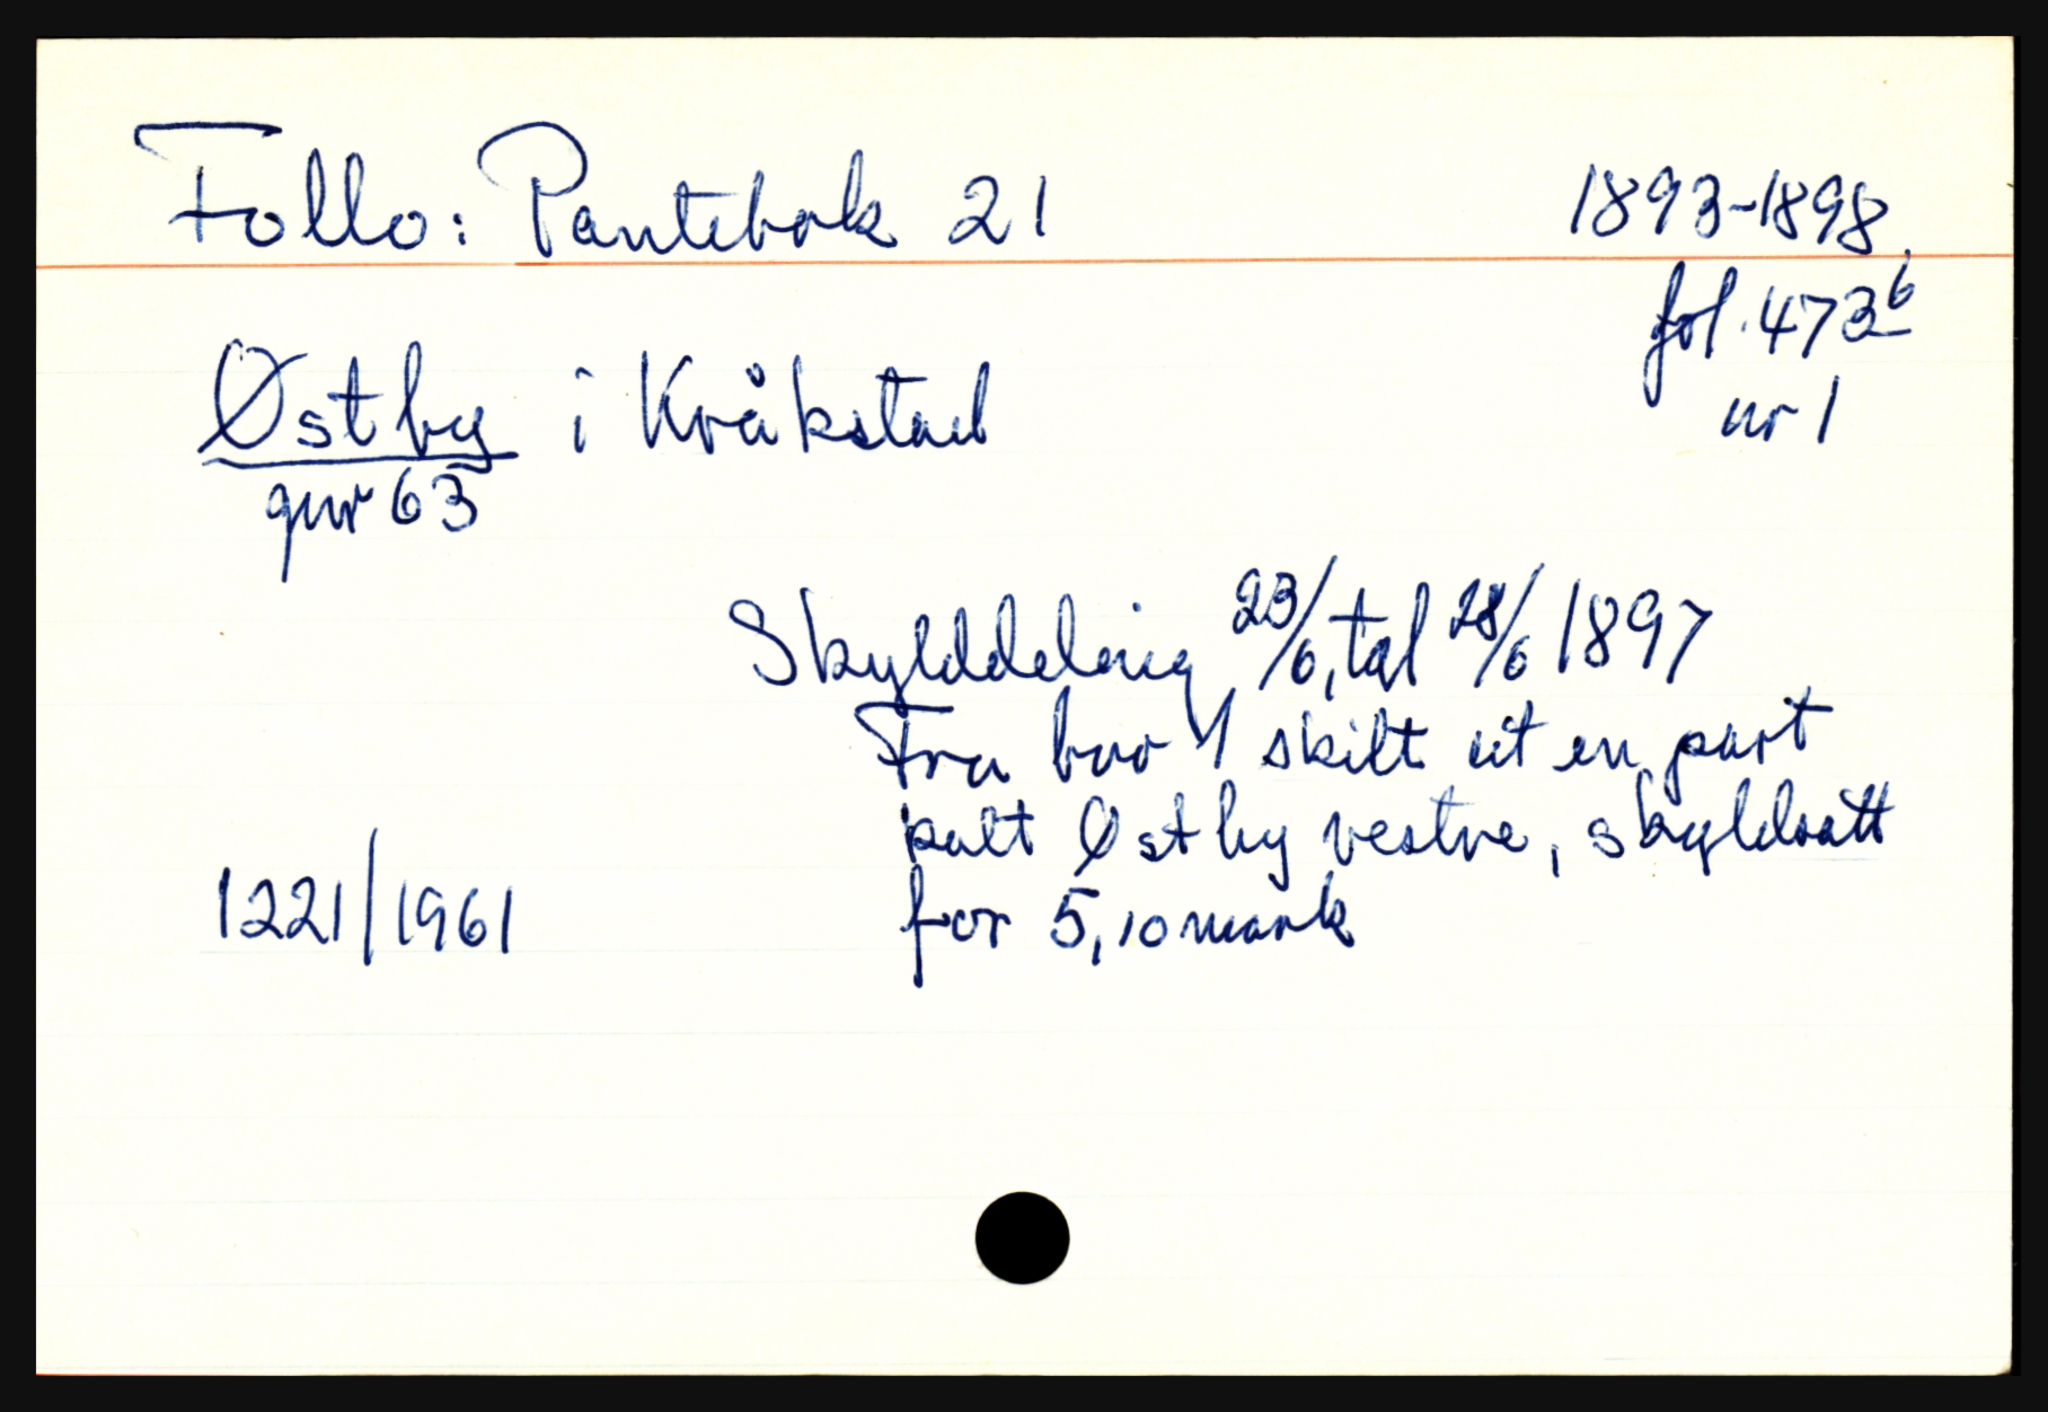 Follo: Pantebok 21 1893-1898
fol. 473b
nr 1
Østby i Kråkstad
gnr 63
Skylddeling 23/6, tgl 28/6 1897
Fra bnr 1 skilt ut en part
kalt Østby vestre, skyldsatt
for 5,10 mark
1221/1961